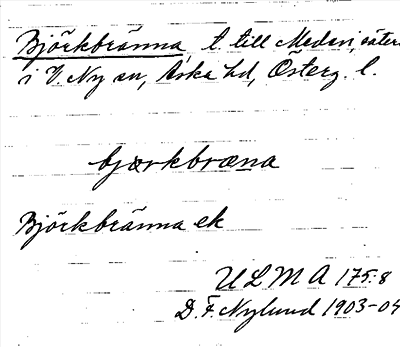 Björkbränna t. till Medevi, säter
i V. Ny sn, Aska hd, Österg. l.
bjærkbræna
Björkbränna ek
ULMA 175:8
D. F. Nylund 1903-04